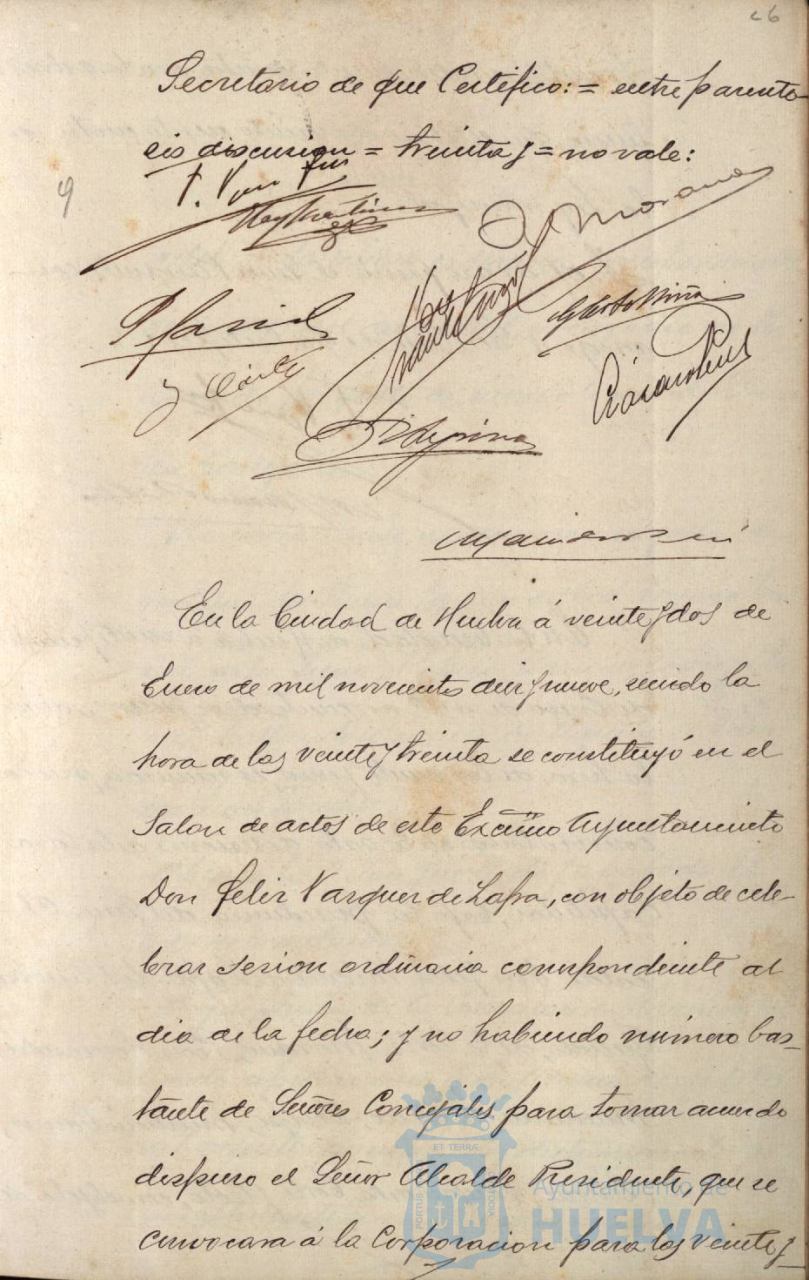 26
Secretario de que Certifico: = entre parente-
sis discusion = treinta y = no vale:
9
J. Morano
En la Ciudad de Huelva á veinte y dos de
Enero de mil novecientos diez y nueve, siendo la
hora de las veinte y treinta se constituyó en el
Salon de actos de este Excmo Ayuntamiento
Don Felix Vazquez de Zafra, con objeto de cele-
brar sesion ordinaria correspondiente al
dia de la fecha; y no habiendo número bas-
tante de Señores Concejales para tomar acuerdo
dispuso el Señor Alcalde Presidente, que se
convocara á la Corporacion para las veinte y
ET TERRÆ
PORTUS
Ayuntamiento de
HUELVA